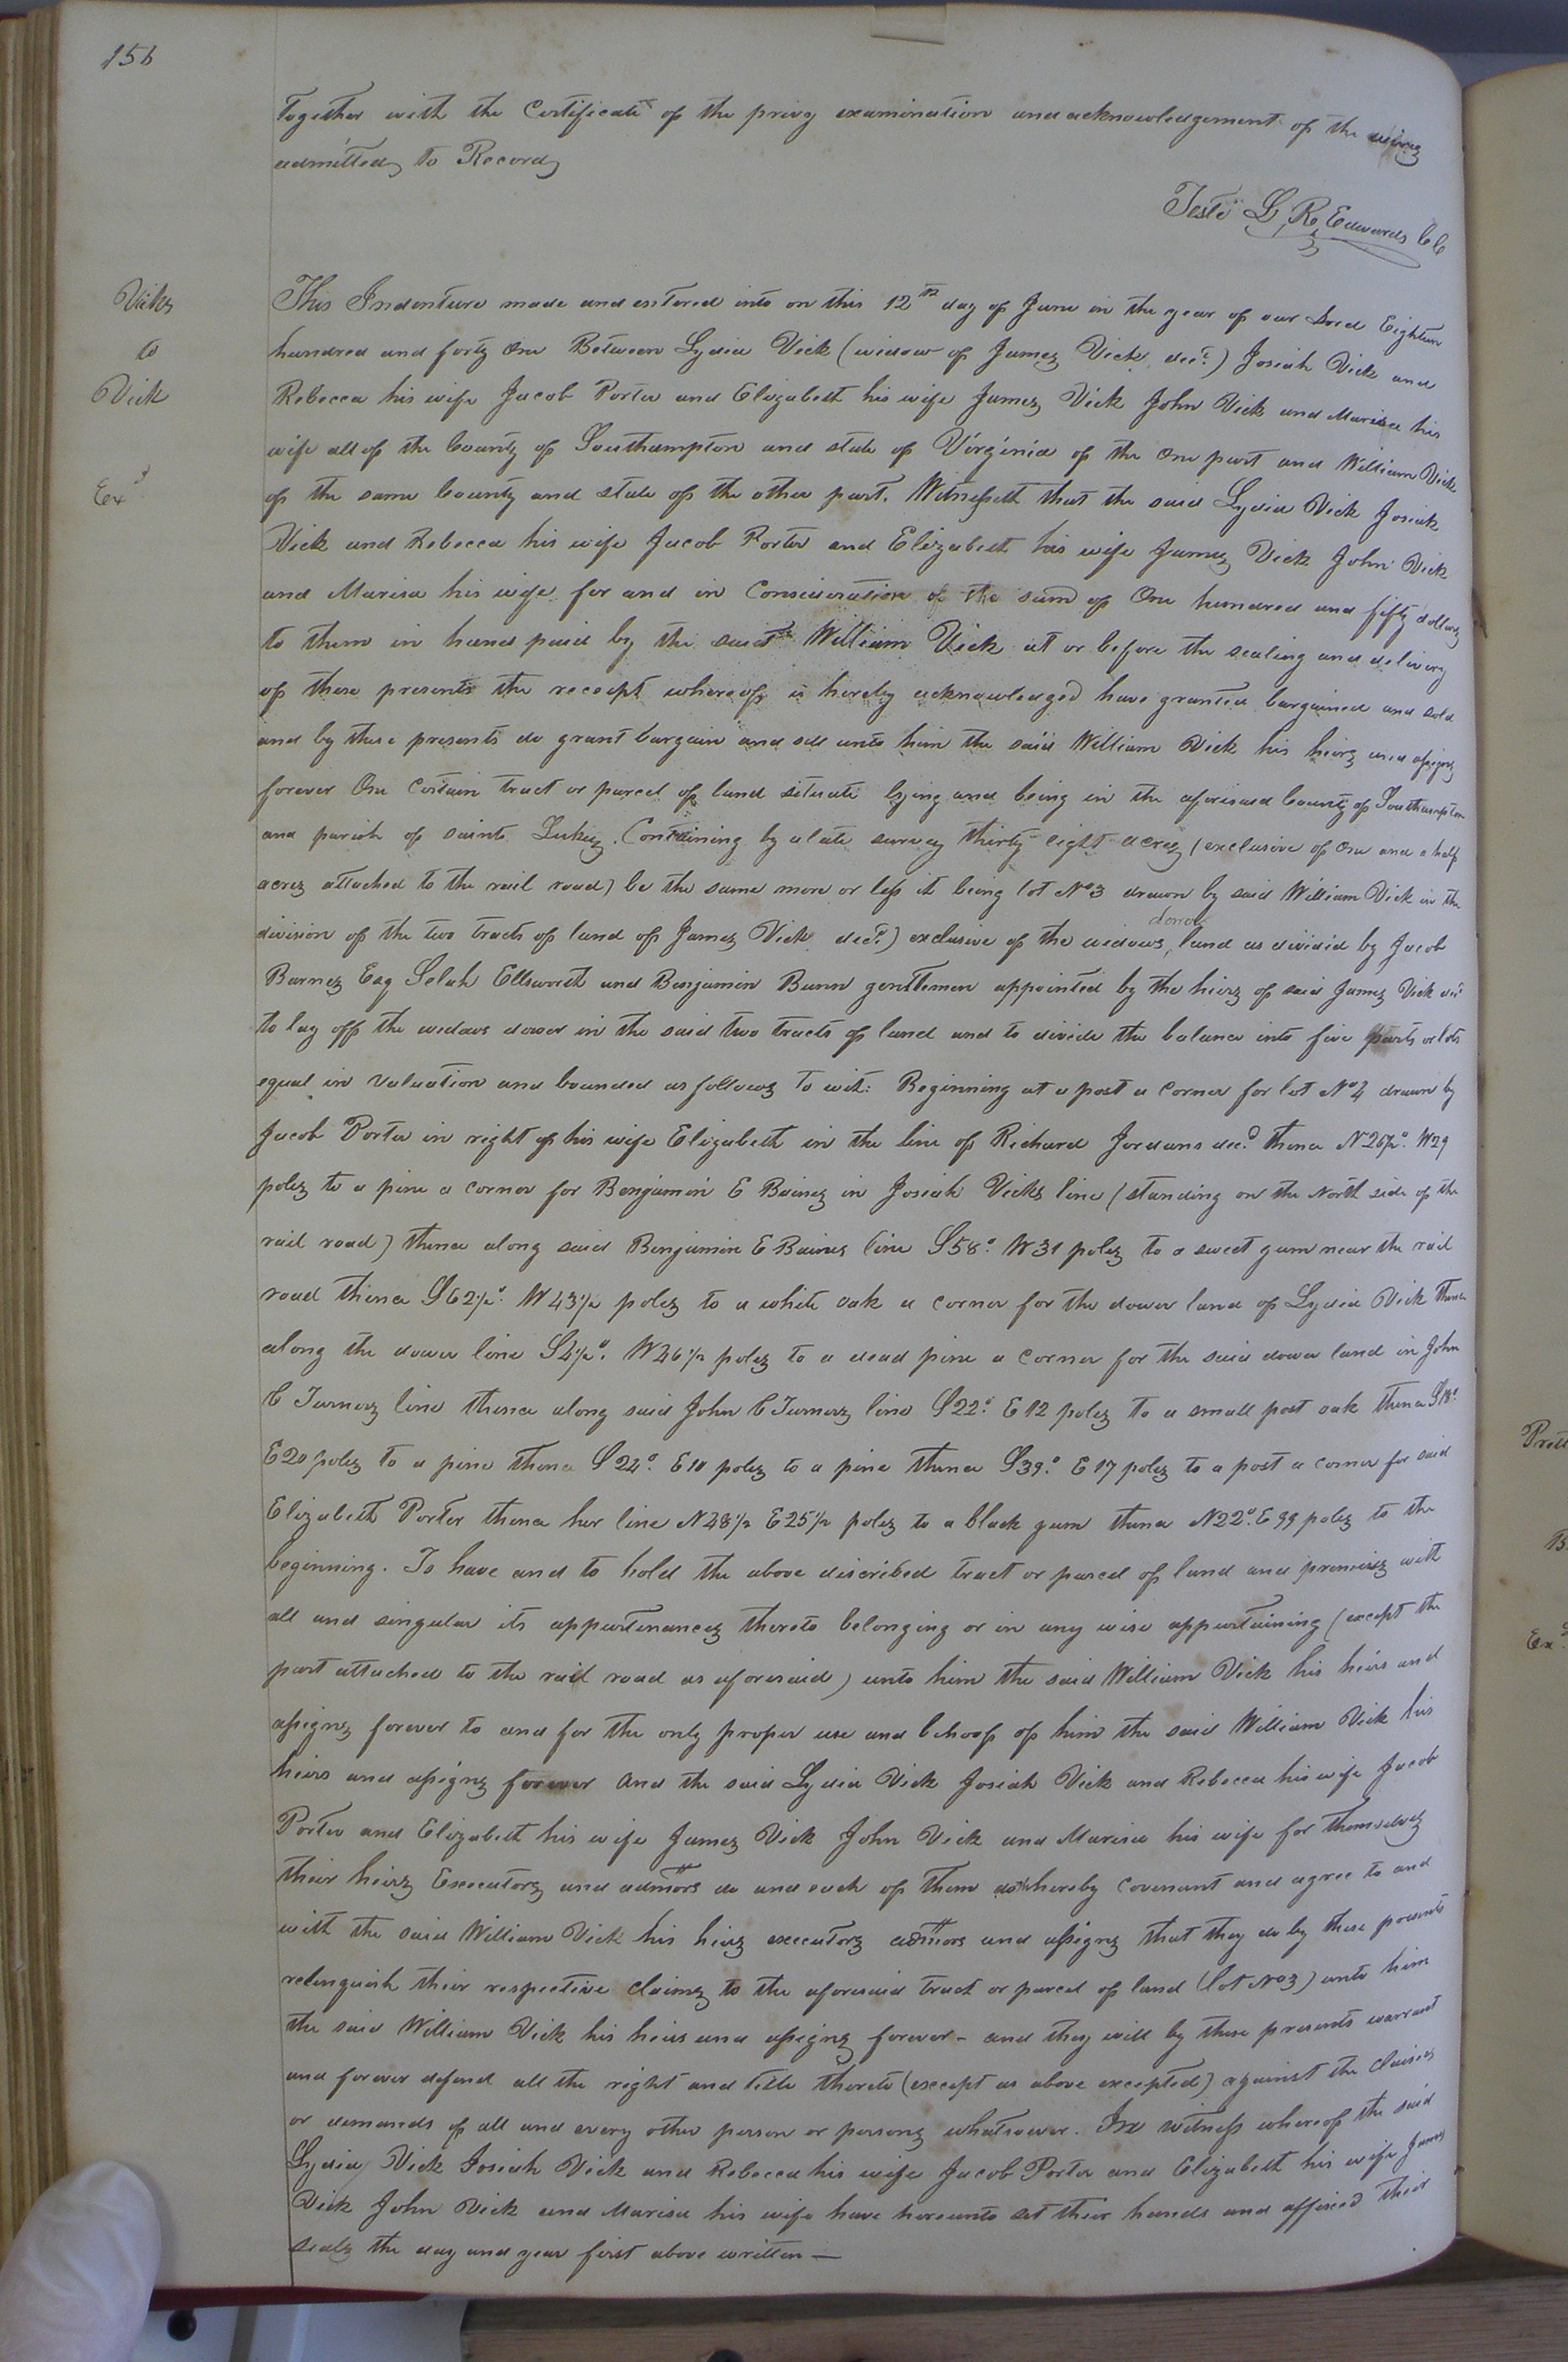 156
Together with the Certificate of the privy examination and acknowledgement of the
admitted to Record
Teste L R Edwards CC
Vicks
to
Vick
Exd
This Indenture made and entered into on this 12th day of June in the year of our Lord Eighteen
hundred and forty One Between Lydia Vick (widow of James Vick decd.) Josiah Vick and
Rebecca his wife Jacob Porter and Elizabeth his wife James Vick John Vick and Marisa his
wife all of the County of Southampton and state of Virginia of the One part and William Vick
of the same County and state of the other part. Witnesseth that the said Lydia Vick Josiah
Vick and Rebecca his wife Jacob Porter and Elizabeth his wife James Vick John Vick
and Marisa his wife for and in Consideration of the sum of One hundred and fifty dollars
to them in hand paid by the said William Vick at or before the sealing and delivery
of these presents the receipt whereof is hereby acknowledged have granted bargained and sold
and by these presents do grant bargain and sell unto him the said William Vick his heirs and assigns
forever One Certain tract or parcel of land situate lying and being in the aforesaid County of Southampton
and parish of saint Lukes. Containing by a late survey thirty eight acres (exclusive of One and a half
acres attached to the rail road) be the same more or less it being lot No3 drawn by said William Vick in the
division of the two tracts of land of James Vick decd.) exclusive of the widows dower land as divided by Jacob
Barnes Esq Selah Ellsworth and Benjamin Bunn gentlemen appointed by the heirs of said James Vick decd
to lay off the widows dower in the said two tracts of land and to divide the balance into five parts or lots
equal in valuation and bounded as follows to wit: Beginning at a post a Corner for lot No4 drawn by
Jacob Porter in right of his wife Elizabeth in the line of Richard Jordans decd. thence N26½°. W29
poles to a pine a corner for Benjamin E Baines in Josiah Vicks line (standing on the North side of the
rail road) thence along said Benjamin E Baines line S58°. W31 poles to a sweet gum near the rail
road thence S62½°. W43½ poles to a white oak a corner for the dower land of Lydia Vick thence
along the dower line S4½°. W46½ poles to a dead pine a corner for the said dower land in John
C Turners line thence along said John C Turners line S22°. E12 poles to a small post oak thence S18°.
E20 poles to a pine thence S24°. E10 poles to a pine thence S39.° E17 poles to a post a corner for said
Elizabeth Porter thence her line N48½ E25½ poles to a black gum thence N22°. E99 poles to the
beginning. To have and to hold the above discribed tract or parcel of land and premises with
all and singular its appurtenances thereto belonging or in any wise appertaining (except the
part attached to the rail road as aforesaid) unto him the said William Vick his heirs and
assigns forever to and for the only proper use and behoof of him the said William Vick his
heirs and assigns forever And the said Lydia Vick Josiah Vick and Rebecca his wife Jacob
Porter and Elizabeth his wife James Vick John Vick and Marisa his wife for themselves
their heirs Executors and admors do and each of them doth hereby Covenant and agree to and
with the said William Vick his heirs executors admors and assigns that they do by these presents
relinquish their respective claims to the aforesaid tract or parcel of land (lot No3) unto him
the said William Vick his heirs and assigns forever - and they will by these presents warrant
and forever defend all the right and title thereto (except as above excepted) against the claims
or demands of all and every other person or persons whatsoever. In witness whereof the said
Lydia Vick Josiah Vick and Rebecca his wife Jacob Porter and Elizabeth his wife James
Vick John Vick and Marisa his wife have hereunto set their hands and affixed their
seals the day and year first above written —